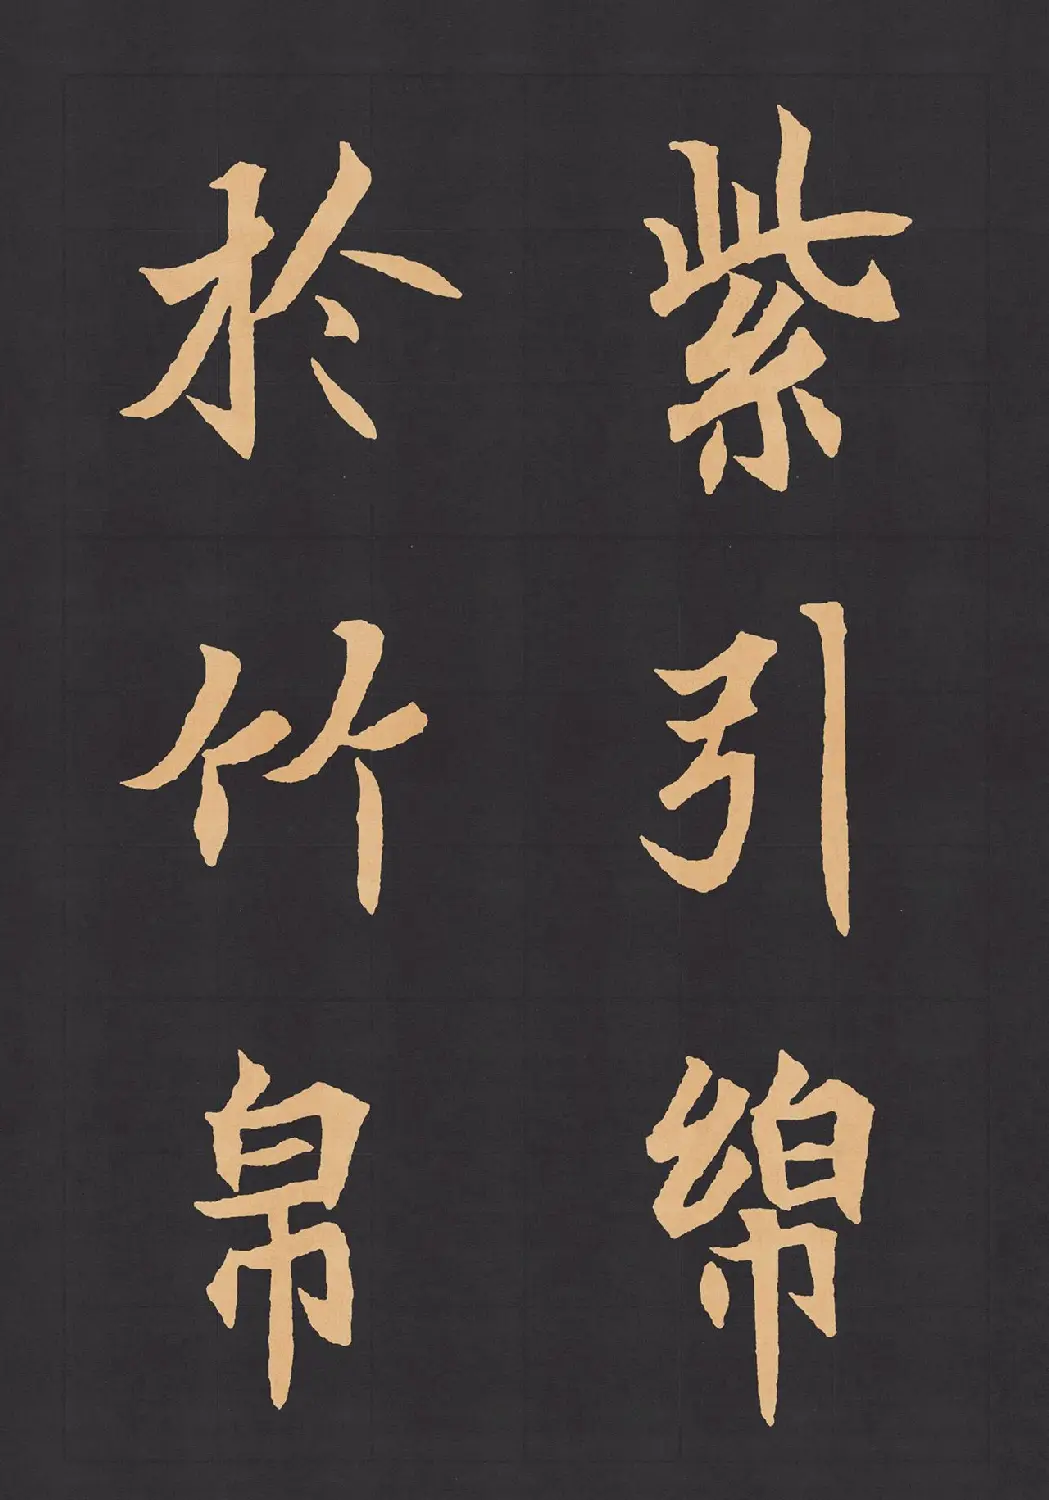 紫引綿
於竹帛